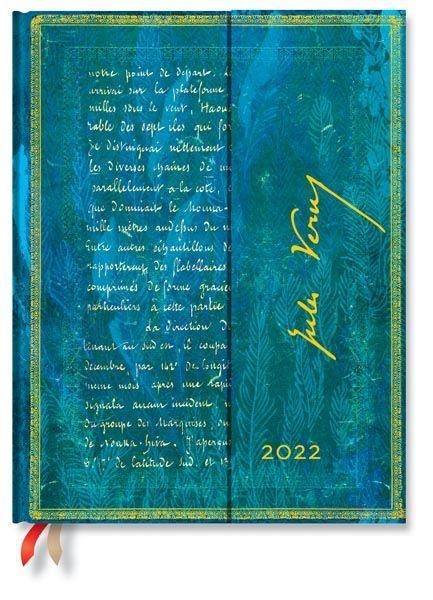 notre point de départ. Le
arrivai sur la plateforme
milles sous le vent,
rable des sept iles qui for
Je distinguai nettement
les diverses chaînes de
parallèlement à la côte,
que dominait le
mille mètres audessus du
Entre autres échantillons
des flabellaires
comprimés de forme
particuliers à cette partie
La Direction
tenant au sud est, il coupa
décembre, par 142° de longit
meme mois après une
signala aucun incident,
du groupe des Marquises, ou
J'aperçus
de latitude sud, et 13
Jules Verne
2022